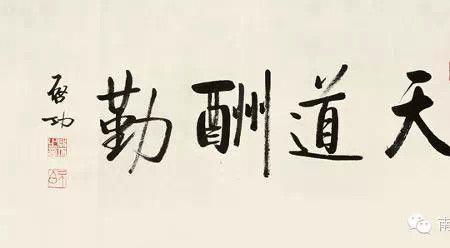 天道酬勤
启功
南